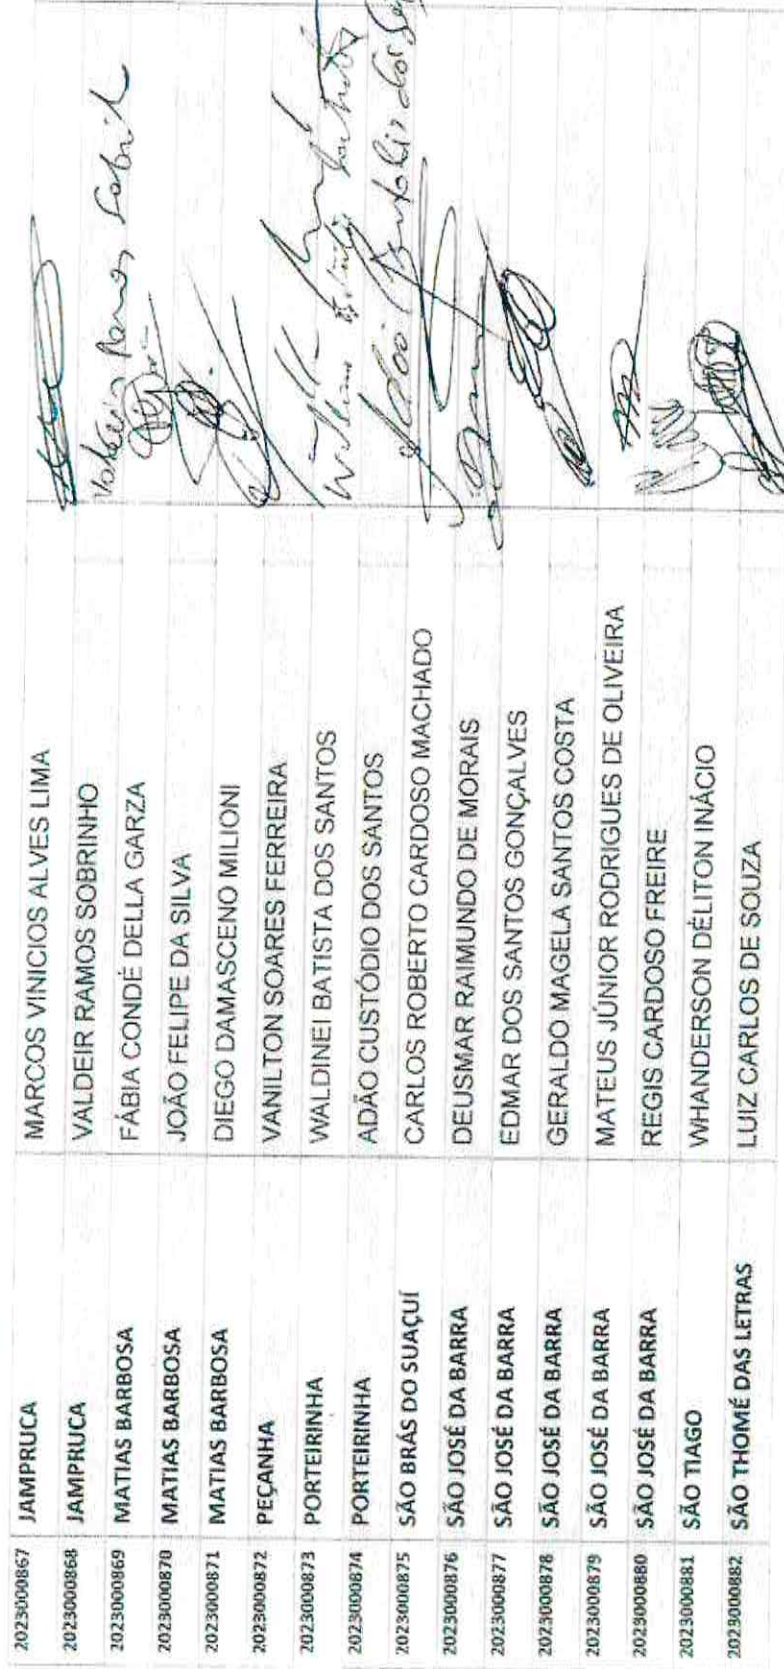 2023000867 JAMPRUCA MARCOS VINICIOS ALVES LIMA
2023000868 JAMPRUCA VALDEIR RAMOS SOBRINHO Valdeir Ramos Sobrinho
2023000869 MATIAS BARBOSA FÁBIA CONDÉ DELLA GARZA
2023000870 MATIAS BARBOSA JOÃO FELIPE DA SILVA
2023000871 MATIAS BARBOSA DIEGO DAMASCENO MILIONI
2023000872 PEÇANHA VANILTON SOARES FERREIRA
2023000873 PORTEIRINHA WALDINEI BATISTA DOS SANTOS
2023000874 PORTEIRINHA ADÃO CUSTÓDIO DOS SANTOS
2023000875 SÃO BRÁS DO SUAÇUÍ CARLOS ROBERTO CARDOSO MACHADO
2023000876 SÃO JOSÉ DA BARRA DEUSMAR RAIMUNDO DE MORAIS
2023000877 SÃO JOSÉ DA BARRA EDMAR DOS SANTOS GONÇALVES
2023000878 SÃO JOSÉ DA BARRA GERALDO MAGELA SANTOS COSTA
2023000879 SÃO JOSÉ DA BARRA MATEUS JÚNIOR RODRIGUES DE OLIVEIRA
2023000880 SÃO JOSÉ DA BARRA REGIS CARDOSO FREIRE
2023000881 SÃO TIAGO WHANDERSON DÉLITON INÁCIO
2023000882 SÃO THOMÉ DAS LETRAS LUIZ CARLOS DE SOUZA